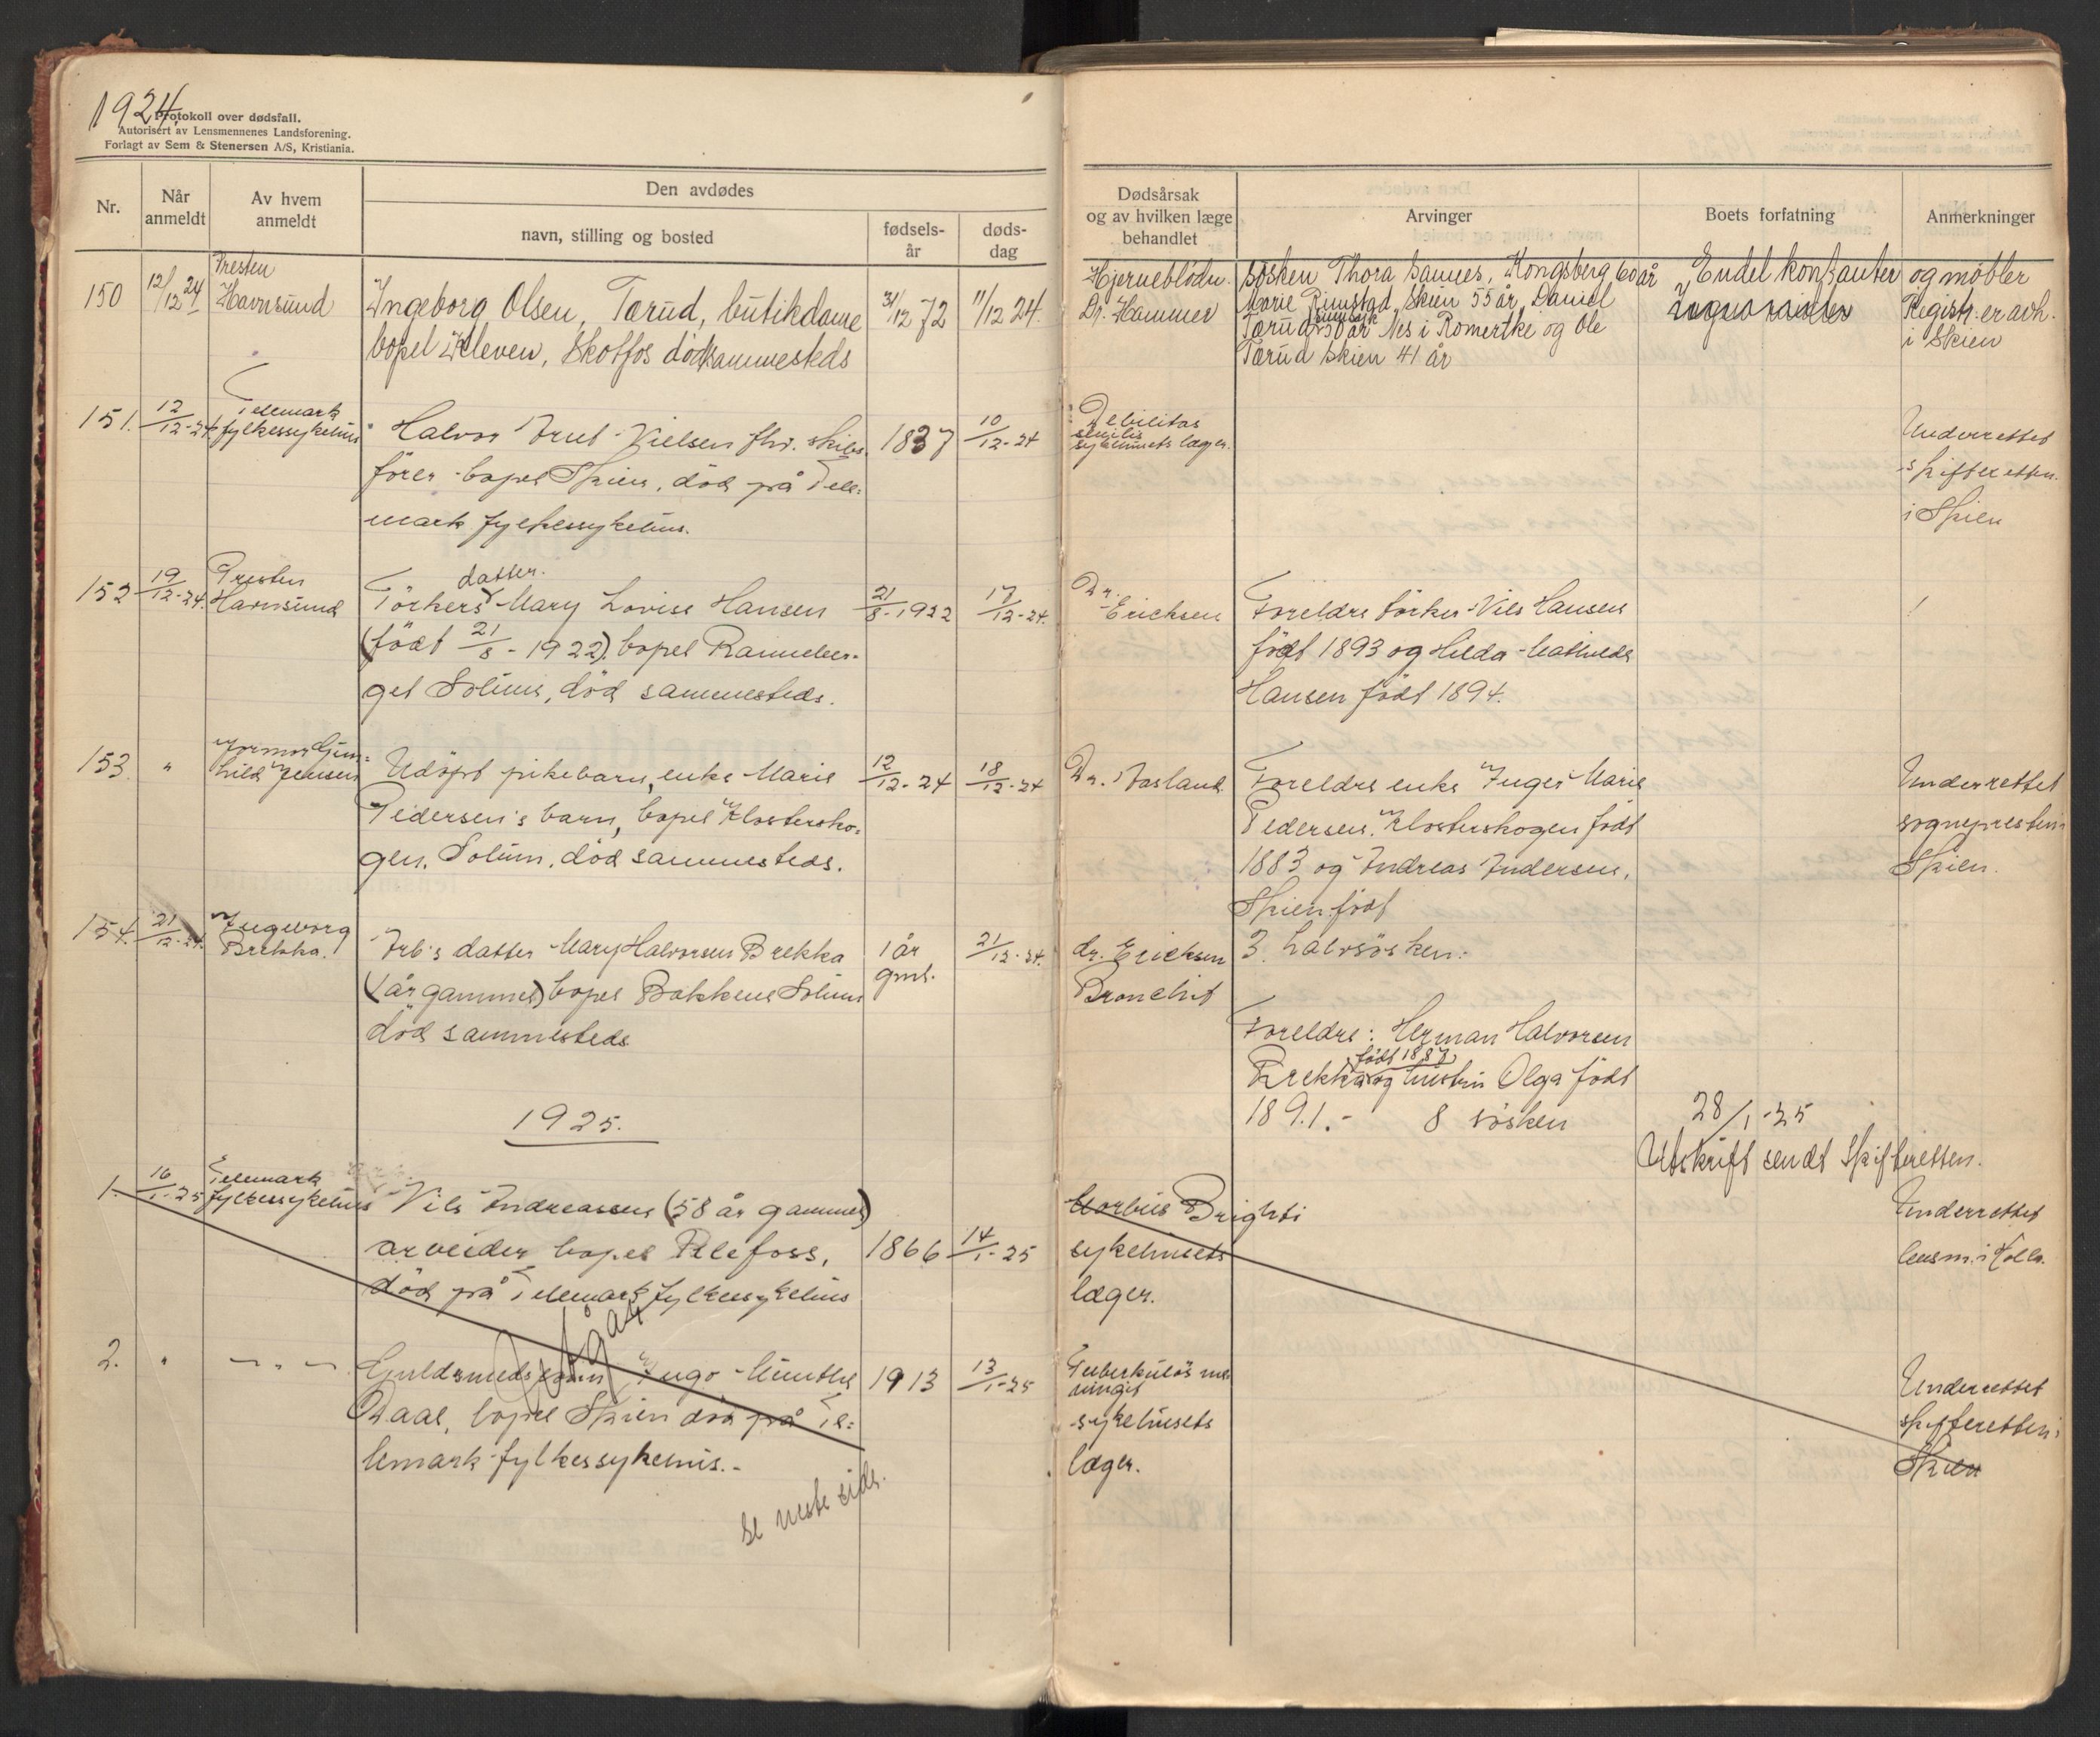 1924.
Protokoll over dødsfall.
Autorisert av Lensmennenes Landsforening.
Forlagt av Sem & Stenersen A/S, Kristiania.
Nr.
Når anmeldt
Av hvem anmeldt
Den avdødes
navn, stilling og bosted
fødsels-år
døds-dag
Dødsårsak og av hvilken læge behandlet
Arvinger
Boets forfatning
Anmerkninger
150 12/12 24 Presten Havnsund
Ingeborg Olsen, Tærud, butikdame
bopel Kleven, Skotfos død sammesteds
31/12 72
11/12 24.
Hjerneblødn.
Dr. Hammer
Søsken Thora Sannes, Kongsberg 60 år
Marie Rimstad, Skien 55 år, Daniel
Tærud 50 år Nes i Romerike og Ole
Tærud Skien 41 år
Endel kontanter og møbler
Registr. er avh.
i Skien
151. 12/12-24 Telemark fylkessykehus
Halvor Nielsen fhv. skibs
fører bopel Skien, død på Tele=
mark fylkessykehus.
1837
10/12-24
Debilitas
senilis
sykehusets læger.
Underrettet
skifteretten
i Skien
152 19/12-24. Presten Havnsund
datter.
Törkers Mary Lovise Hansen
(født 21/8 - 1922). bopel Ramneber-
get Solum, død sammesteds.
21/8-1922
17/12-24.
Dr.
Erichsen
Foreldre törker Nils Hansen
født 1893 og Hilda Mathilde
Hansen født 1894.
153 " Jormor Gun=
hild Jensen
Udöpt pikebarn, enke Marie
Pedersen's barn, bopel Klostersko=
gen, Solum, død sammesteds.
12/12-24
18/12-24
Dr. Aasland
Foreldre enke Inger Marie
Pedersen, Klosterskogen født
1883 og Andreas Andersen,
Skien født
3 halvsøsken.
Underrettet
sognepresten i
Skien.
154. 21/12-24. Ingeborg
Brekka.
Arb's datter Mary Halvorsen Brekka
(1 år gammel) bopel Bakkene Solum
död sammesteds
1 år
gml.
21/12-24.
dr. Erichsen
Bronchit
Foreldre: Herman Halvorsen
født 1887
Brekka og hustru Olga født
1891.- 8 søsken
28/1-25
Utskrift sendt Skifteretten.
1925.
1. 16/1-25 Telemark
fylkessykehus
Nils Andreassen (58 år gammel)
arbeider, bopel Ulefoss,
død på Telemark fylkessykehus
1866
14/1-25
Morbus Brighti
sykehusets
læger.
Underrettet
lensm. i Holla.
Utgår
2. " - " -
Guldsmeds sönn, Ingo Munthe
Daal, bopel Skien død på Te=
lemark fylkessykehus.-
1913
13/1-25
Tuberkuløs me
ningit
sykehusets
læger.
Underrettet
skifteretten i
Skien
Se neste side.